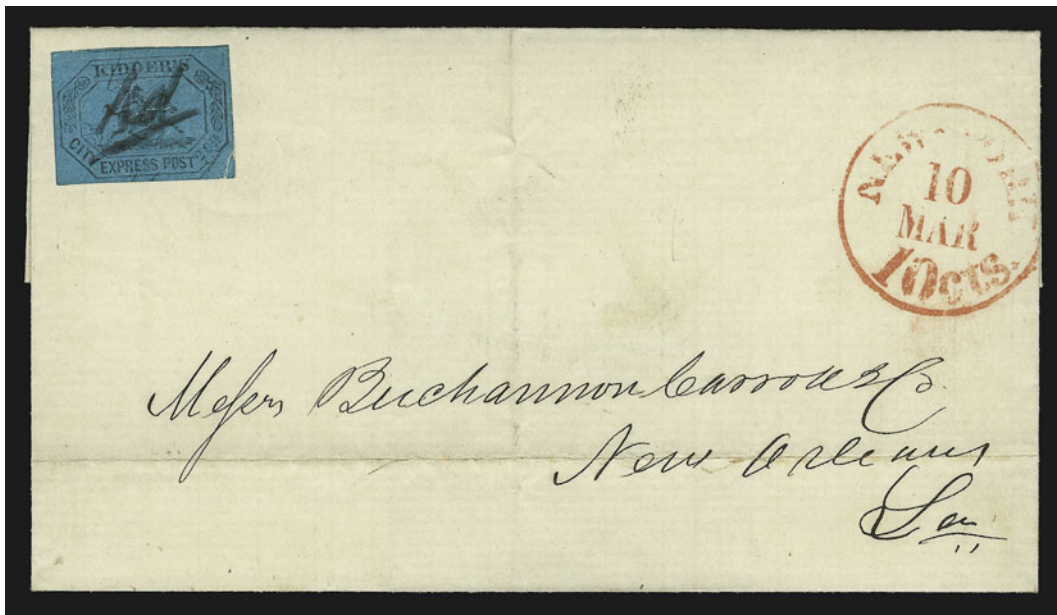 KIDDER'S
CITY EXPRESS POST
NEW YORK
10
MAR
10cts.
Messrs Buchannon Carroll & Co.
New Orleans
Lou